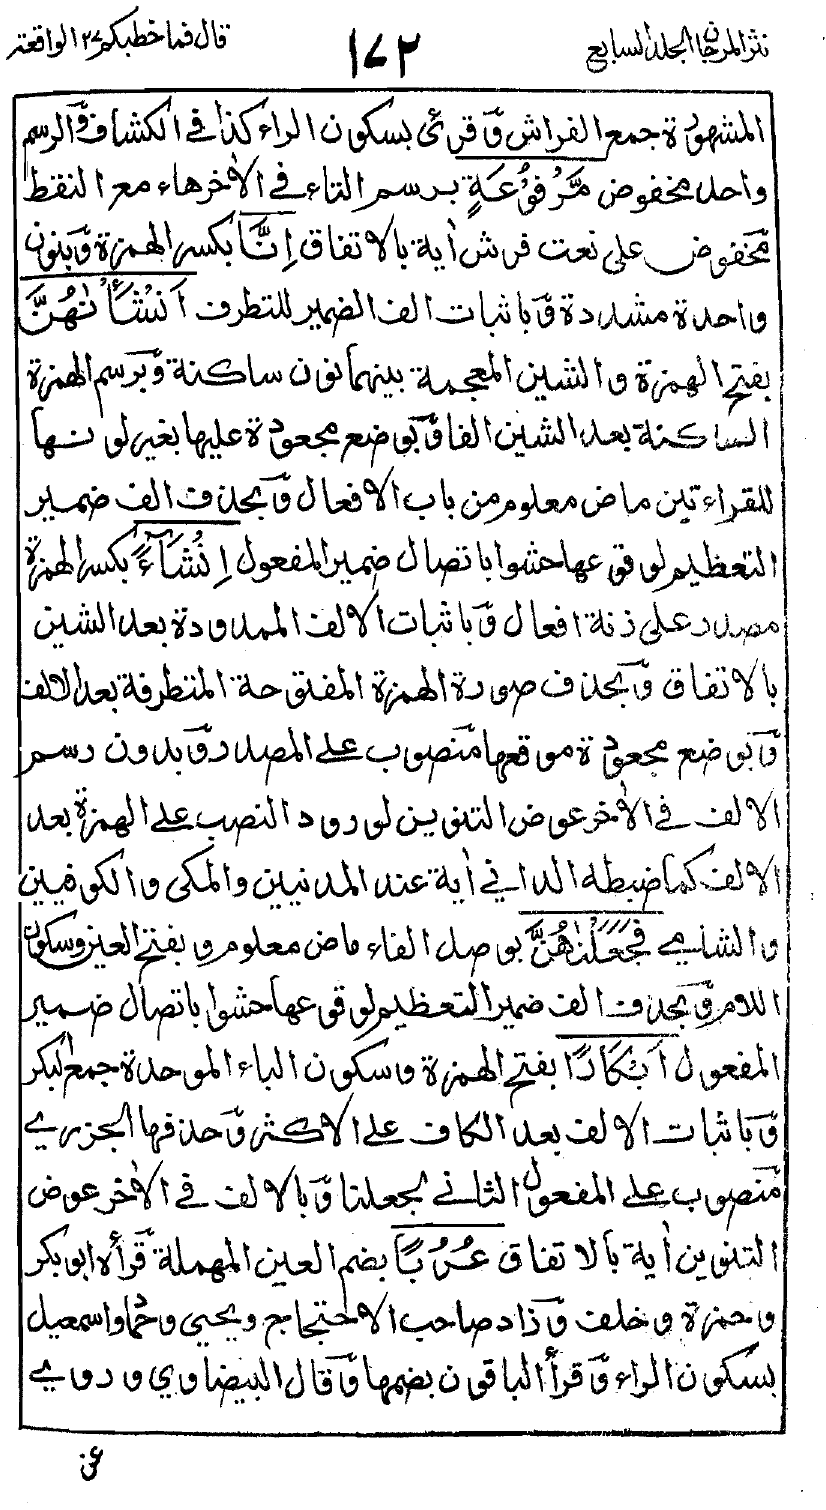 نثر المرجان الجلد السابع
١٧٢
قال فما خطبكم ٢٧ الواقعة
المشهورة جمع الفراش وقرئ بسكون الراء كذا في الكشاف والرسم
واحد مخفوض مَّرْفُوعَةٍ برسم التاء في الآخر هاء مع النقط
مخفوض على نعت فرش آية بالاتفاق اِنَّا بكسر الهمزة وبنون
واحدة مشددة وباثبات الف الضمير للتطرف اَنْشَأْنٰهُنَّ
بفتح الهمزة والشين المعجمة بينهما نون ساكنة وبرسم الهمزة
الساكنة بعد الشين الفا وبوضع مجعودة عليها بغير لونها
للقراءتين ماض معلوم من باب الافعال وبحذف الف ضمير
التعظيم لوقوعها حشوا باتصال ضمير المفعول اِنْشَآءً بكسر الهمزة
مصدر على زنة افعال وباثبات الالف الممدودة بعد الشين
بالاتفاق وبحذف صورة الهمزة المفتوحة المتطرفة بعد الالف
وبوضع مجعودة موقعها منصوب على المصدر وبدون رسم
الالف في الآخر عوض التنوين لورود النصب على الهمزة بعد
الالف كما ضبطه الداني آية عند المدنيين والمكي والكوفيين
والشامي فَجَعَلْنٰهُنَّ بوصل الفاء ماض معلوم وبفتح العين وسكون
اللام وبحذف الف ضمير التعظيم لوقوعها حشوا باتصال ضمير
المفعول اَبْكَارًا بفتح الهمزة وسكون الباء الموحدة جمع البكر
وباثبات الالف بعد الكاف على الاكثر وحذفها الجزري
منصوب على المفعول الثاني لجعلنا وبالالف في الآخر عوض
التنوين آية بالاتفاق عُرُبًا بضم العين المهملة قرأه ابو بكر
وحمزة وخلف وزاد صاحب الاحتجاج ويحيى وحما واسمعيل
بسكون الراء وقرأ الباقون بضمها وقال البيضاوي وروي
عن